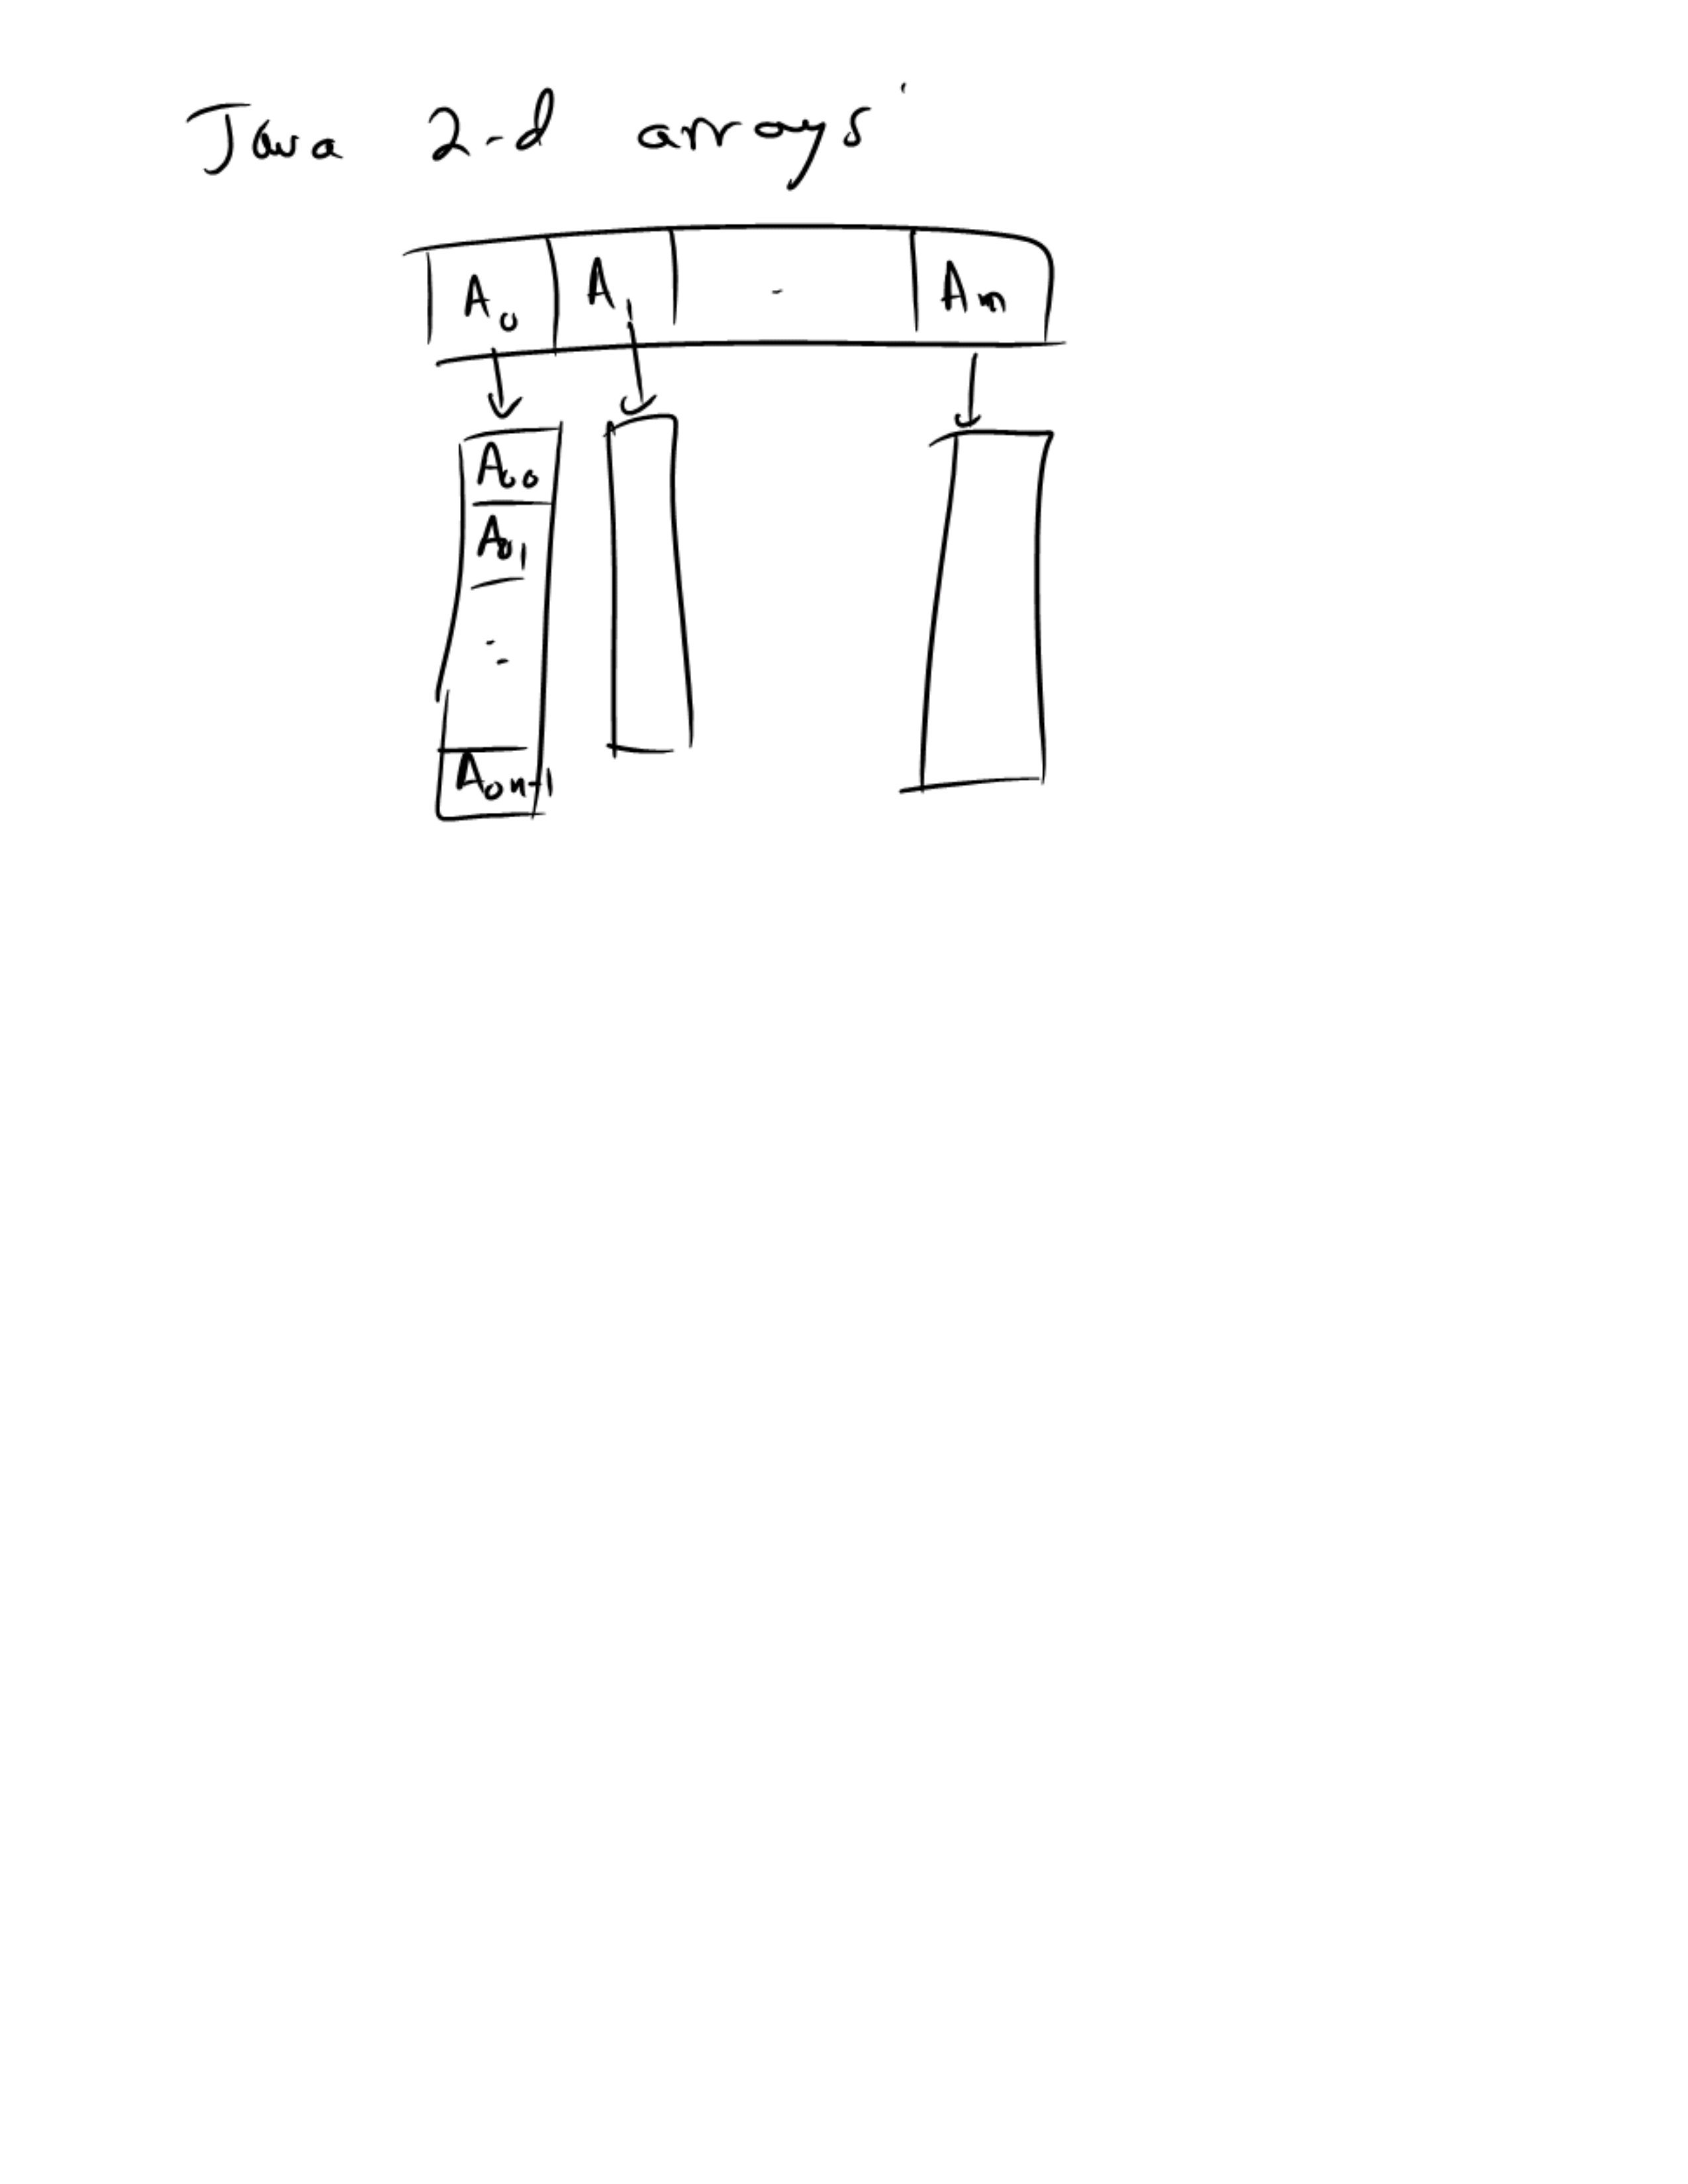 Java 2-d arrays
A0 A1 . Am
A00
A01
:
A0n-1